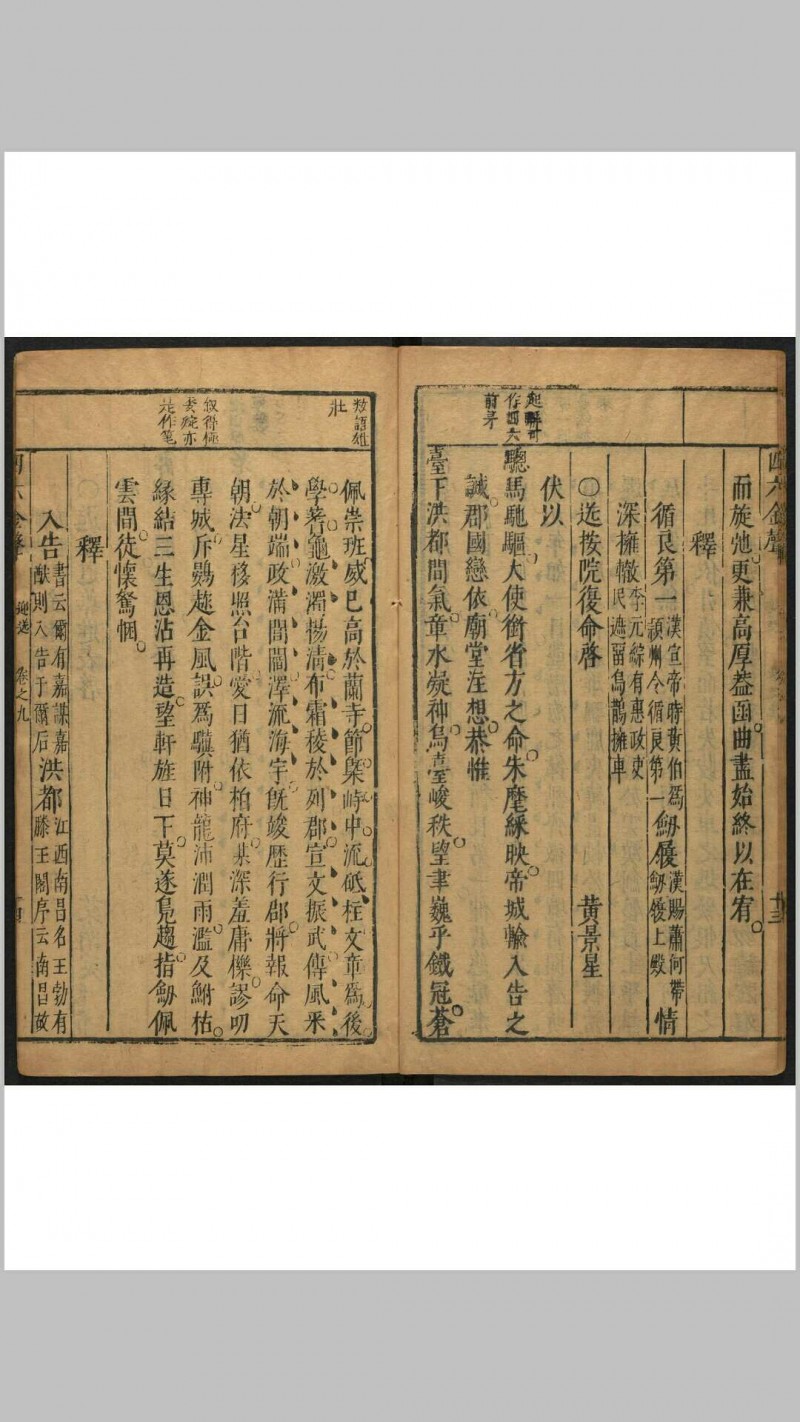 四六金聲
十三
起語可
作四六
前矛
而旋弛更兼高厚葢函曲盡始終以在宥
釋
循良第一 漢宣帝時黃伯爲 潁州令循良第一 劒履 漢賜蕭何帶 劒履上殿 情
深擁轍 李元綜有惠政吏 民遮畱烏鵲擁車
○送按院復命啓 黄景星
伏以
驄馬馳驅大使銜省方之命朱麾綵映帝城輸入告之
誠郡國戀依廟堂注想恭惟
臺下洪都間氣章水凝神烏臺峻秩望聿巍乎鐵冠蒼
數語雄
壯
叙得極
委婉亦
是作筆
佩崇班威已高於蘭寺節槩峙中流砥柱文章爲後
學蓍龜激濁揚清布霜稜於列郡宣文振武傳風采
於朝端政滿閭閻澤流海宇旣竣歷行郡將報命天
朝法星移照台階愛日猶依柏府某深羞庸櫟謬叨
專城斥鷃趂金風誤爲驥附神龍沛潤雨濫及鮒枯
緣結三生恩沾再造望軒旌日下莫遂鳧趨指劒佩
雲間徒懷駑悃
釋
入告 書云爾有嘉謀嘉 猷則入告于爾后 洪都 江西南昌名王勃有 滕王閣序云南昌故
卷之九